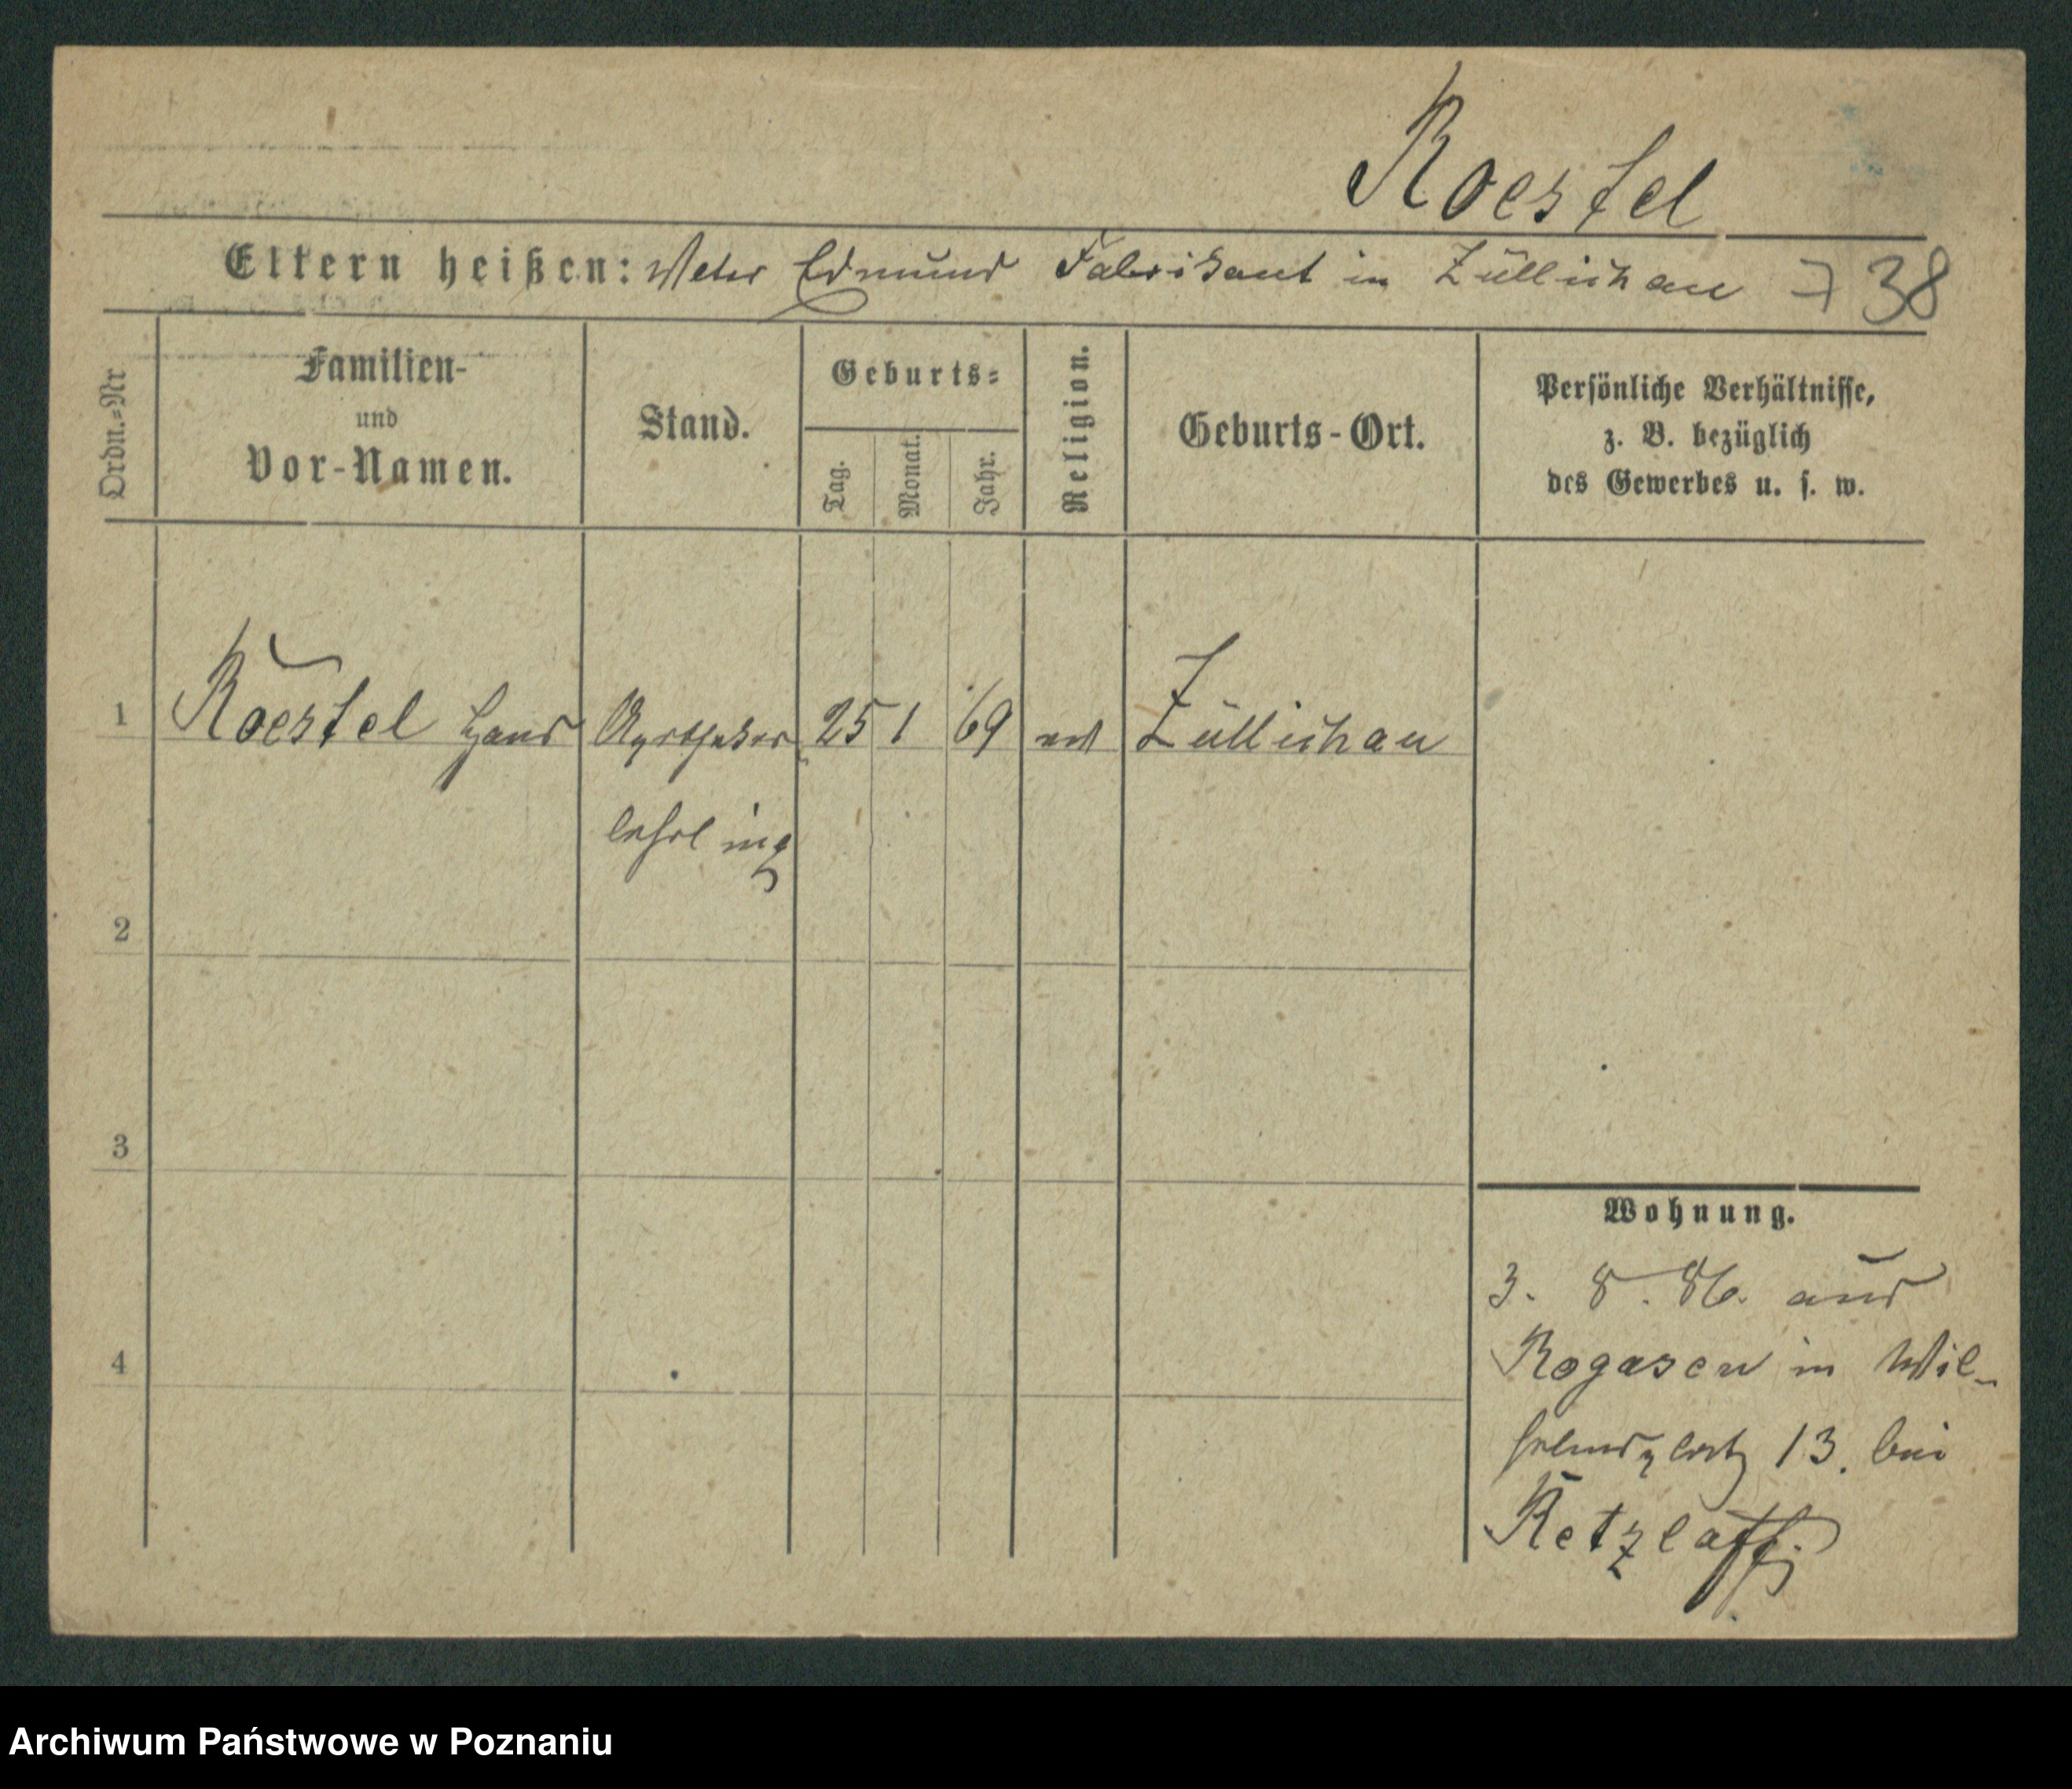 Roestel
Eltern heißen: Vater Edmund Fabrikant in Züllichau 38
Ordn.=Nr
Familien-
und
Vor-Namen.
Stand.
Geburts=
Tag.
Monat.
Jahr.
Religion.
Geburts-Ort.
Persönliche Verhältnisse,
z. B. bezüglich
des Gewerbes u. s. w.
1 Roestel Hans Apotheker 25 1 69 Züllichau
lehrling
2
3
4
Wohnung.
3. 8. 86. aus
Rogasen in Wil-
helmsplatz 13. bei
Retzlaff
Archiwum Państwowe w Poznaniu